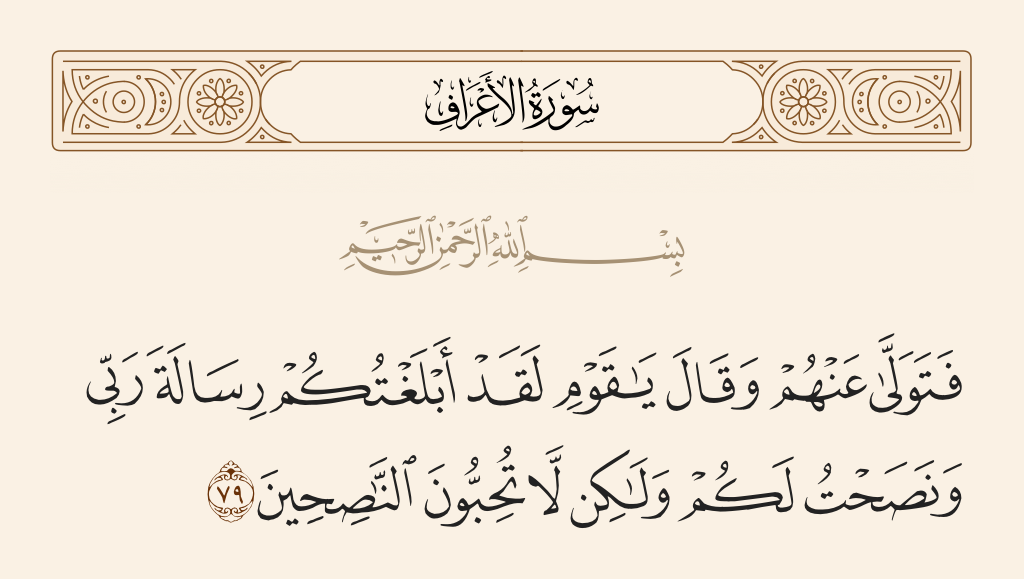 سُورَةُ الأَعْرَافِ
بِسْمِ ٱللَّهِ ٱلرَّحْمَٰنِ ٱلرَّحِيمِ
فَتَوَلَّىٰ عَنْهُمْ وَقَالَ يَـٰقَوْمِ لَقَدْ أَبْلَغْتُكُمْ رِسَالَةَ رَبِّى
وَنَصَحْتُ لَكُمْ وَلَـٰكِن لَّا تُحِبُّونَ ٱلنَّـٰصِحِينَ ٧٩